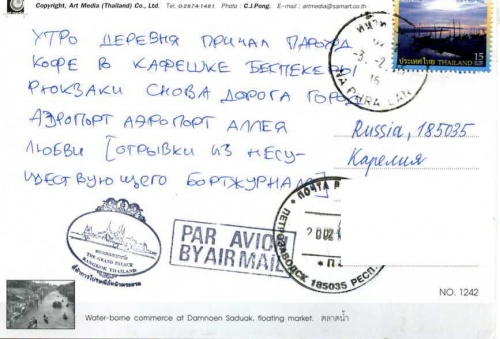 Copyright. Art Media (Thailand) Co., Ltd. Tel. 0-2874-1481. Photo : C.J.Pong. E-mail : artmedia@samart.co.th
УТРО ДЕРЕВНЯ ПРИЧАЛ ПАРОХОД
КОФЕ В КАФЕШКЕ БЕКПЕКЕРЫ
РЮКЗАКИ СНОВА ДОРОГА ГОРОД
АЭРОПОРТ АЭРОПОРТ АЛЛЕЯ
ЛЮБВИ [ОТРЫВКИ ИЗ НЕСУ-
ЩЕСТВУЮЩЕГО БОРТЖУРНАЛА]
ประเทศไทย THAILAND
15
PHRA LAN
Russia, 185035
Карелия
ПОЧТА
ПЕТРОЗАВОДСК 185035 РЕСП.
THE GRAND PALACE
BANGKOK THAILAND
PAR AVION
BY AIR MAIL
NO. 1242
Water-borne commerce at Damnoen Saduak, floating market. ตลาดน้ำ